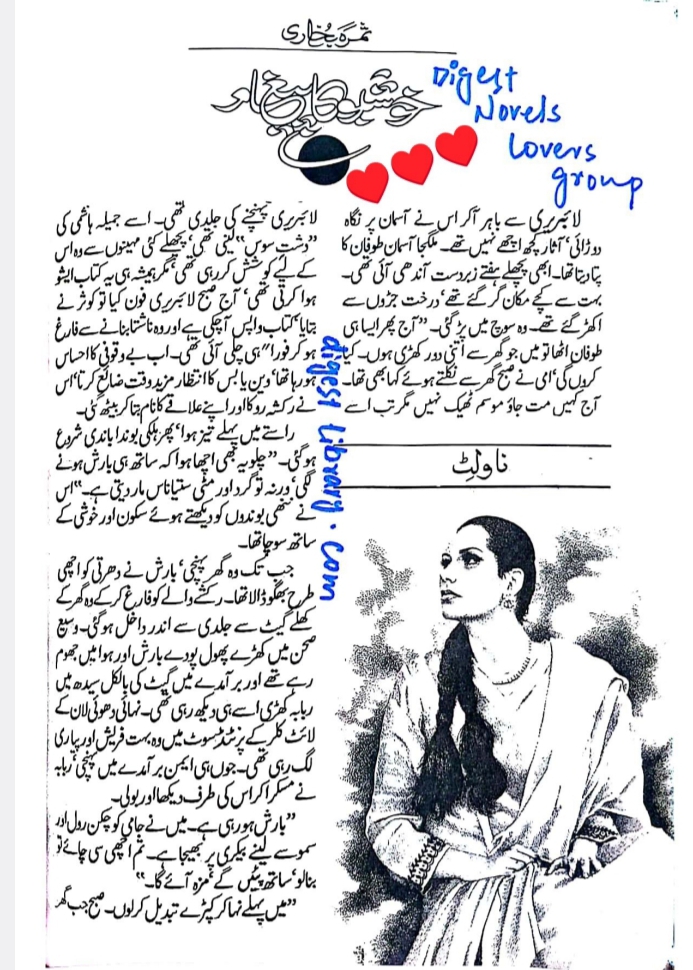 ثمرہ بخاری
خوشبو کا پیغام
Digest
Novels
Lovers
group
لائبریری سے باہر آکر اس نے آسمان پر نگاہ
دوڑائی، آثار کچھ اچھے نہیں تھے۔ ملگجا آسمان طوفان کا
پتا دیتا تھا۔ ابھی پچھلے ہفتے زبردست آندھی آئی تھی۔
بہت سے کچے مکان گر گئے تھے، درخت جڑوں سے
اکھڑ گئے تھے۔ وہ سوچ میں پڑ گئی۔ ”آج پھر ایسا ہی
طوفان اٹھا تو میں جو گھر سے اتنی دور کھڑی ہوں۔ کیا
کروں گی، امی نے صبح گھر سے نکلتے ہوئے کہا بھی تھا۔
آج کہیں مت جاؤ موسم ٹھیک نہیں مگر تب اسے
ناولٹ
لائبریری پہنچنے کی جلدی تھی۔ اسے جمیلہ ہاشمی کی
”دشت سوس“ لینی تھی، پچھلے کئی مہینوں سے وہ اس
کے لیے کوشش کر رہی تھی، مگر ہمیشہ ہی یہ کتاب ایشو
ہوا کرتی تھی، آج صبح لائبریری فون کیا تو کوثر نے
بتایا، کتاب واپس آچکی ہے اور وہ ناشتا بنانے سے فارغ
ہو کر فورا“ ہی چلی آئی تھی۔ اب بے وقوفی کا احساس
ہو رہا تھا، وین یا بس کا انتظار مزید وقت ضائع کرنا، اس
نے رکشہ روکا اور اپنے علاقے کا نام بتا کر بیٹھ گئی۔
راستے میں پہلے تیز ہوا، پھر ہلکی بوندا باندی شروع
ہو گئی۔ ”چلو یہ بھی اچھا ہوا کہ ساتھ ہی بارش ہونے
لگی، ورنہ تو گرد اور مٹی ستیاناس مار دیتی ہے۔“ اس
نے ننھی بوندوں کو دیکھتے ہوئے سکون اور خوشی کے
ساتھ سوچا تھا۔
جب تک وہ گھر پہنچی، بارش نے دھرتی کو اچھی
طرح بھگو ڈالا تھا۔ رکشے والے کو فارغ کر کے وہ گھر کے
کھلے گیٹ سے جلدی سے اندر داخل ہو گئی۔ وسیع
صحن میں کھڑے پھول پودے بارش اور ہوا میں جھوم
رہے تھے اور برآمدے میں گیٹ کی بالکل سیدھ میں
ربابہ کھڑی اسے ہی دیکھ رہی تھی۔ نہائی دھوئی لان کے
لائٹ کلر کے پرنٹڈ سوٹ میں وہ بہت فریش اور پیاری
لگ رہی تھی۔ جوں ہی ایمن برآمدے میں پہنچی، ربابہ
نے مسکرا کر اس کی طرف دیکھا اور بولی۔
”بارش ہو رہی ہے۔ میں نے جامی کو چکن رول اور
سموسے لینے بیکری پر بھیجا ہے۔ تم اچھی سی چائے تو
بنالو، ساتھ پئیں گے، مزہ آئے گا۔“
”میں پہلے نہا کر کپڑے تبدیل کر لوں۔ صبح جب گھر
digest library.com